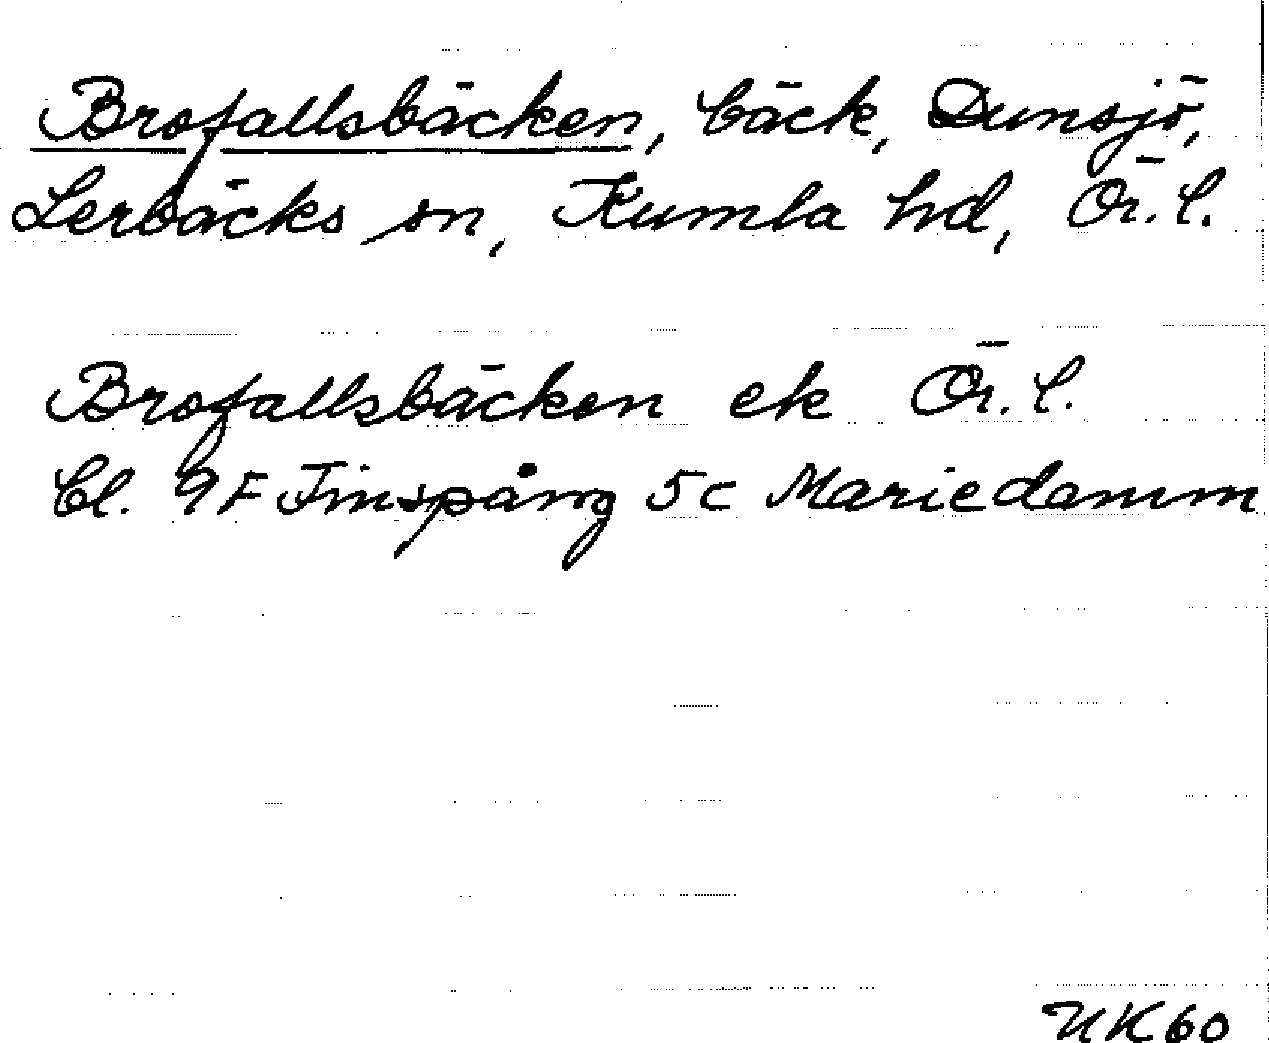 Brofallsbäcken, bäck, Dunsjö,
Lerbäcks sn, Kumla hd, Ör. l.
Brofallsbäcken ek Ör. l.
bl. 9F Finspång 5c Mariedamm
NK60